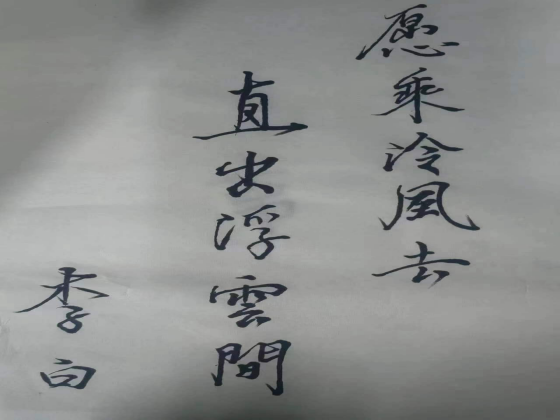 愿乘冷風去
直出浮雲間
李白